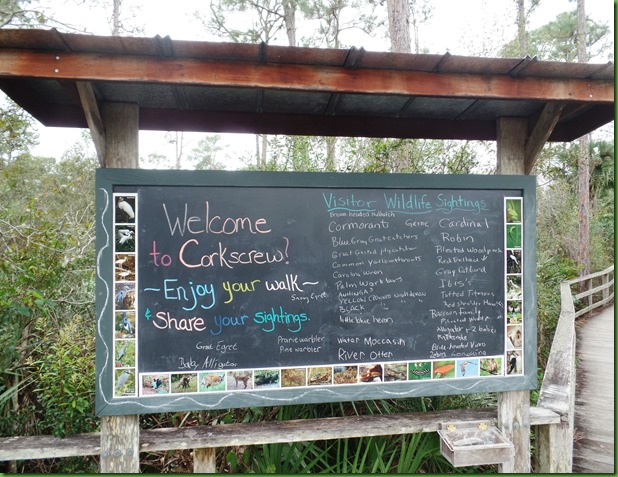 Welcome
to Corkscrew!
~Enjoy your walk~
Snowy Egret
& Share your sightings.
Great Egret
Baby Alligator
Prairie warbler
Pine warbler
Visitor Wildlife Sightings
Brown headed Nuthatch
Cormorant
Blue Gray Gnatcatcher
Great Crested flycatcher
Common Yellowthroat
Carolina Wren
Palm Warblers
YELLOW CROWNED
BLACK
little blue heron
Water Moccasin
River Otter
Cardinal
Robin
Pileated Woodpeck
Gray Catbird
Ibis's
Tufted Titmouse
Red shoulder Hawks
Raccoon family
Painted
Alligator + 2 babies
Blue headed Vireo
Zebra Longwing